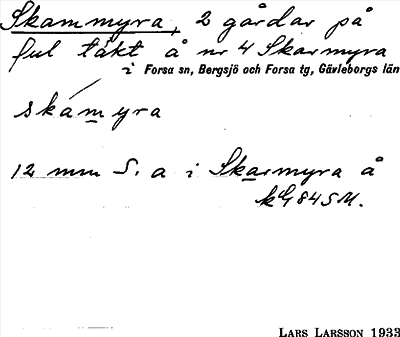 Skammyra, 2 gårdar på
ful täkt å nr 4 Skarmyra
i Forsa sn, Bergsjö och Forsa tg, Gävleborgs län
skamyra
12 mm S. a i Skarmyra å
84 SM.
LARS LARSSON 1933